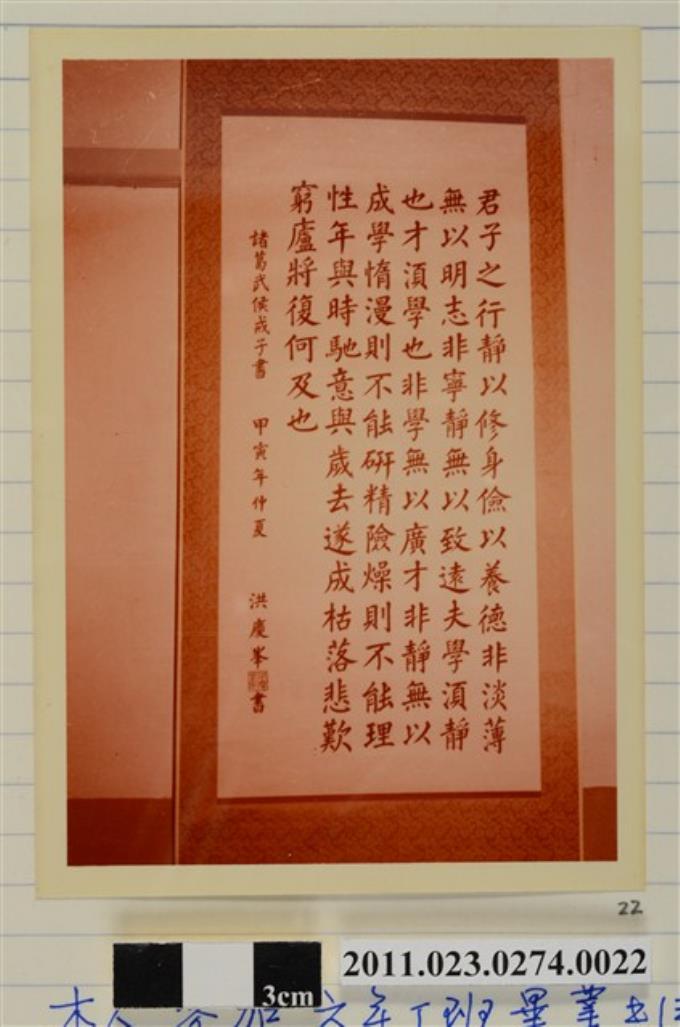 君子之行靜以修身儉以養德非淡薄
無以明志非寧靜無以致遠夫學湏靜
也才湏學也非學無以廣才非靜無以
成學惰漫則不能研精險燥則不能理
性年與時馳意與歲去遂成枯落悲歎
窮廬將復何及也
諸葛武侯戒子書 甲寅年仲夏 洪慶峯 書
22
2011.023.0274.0022
3cm
六年丁班畢業